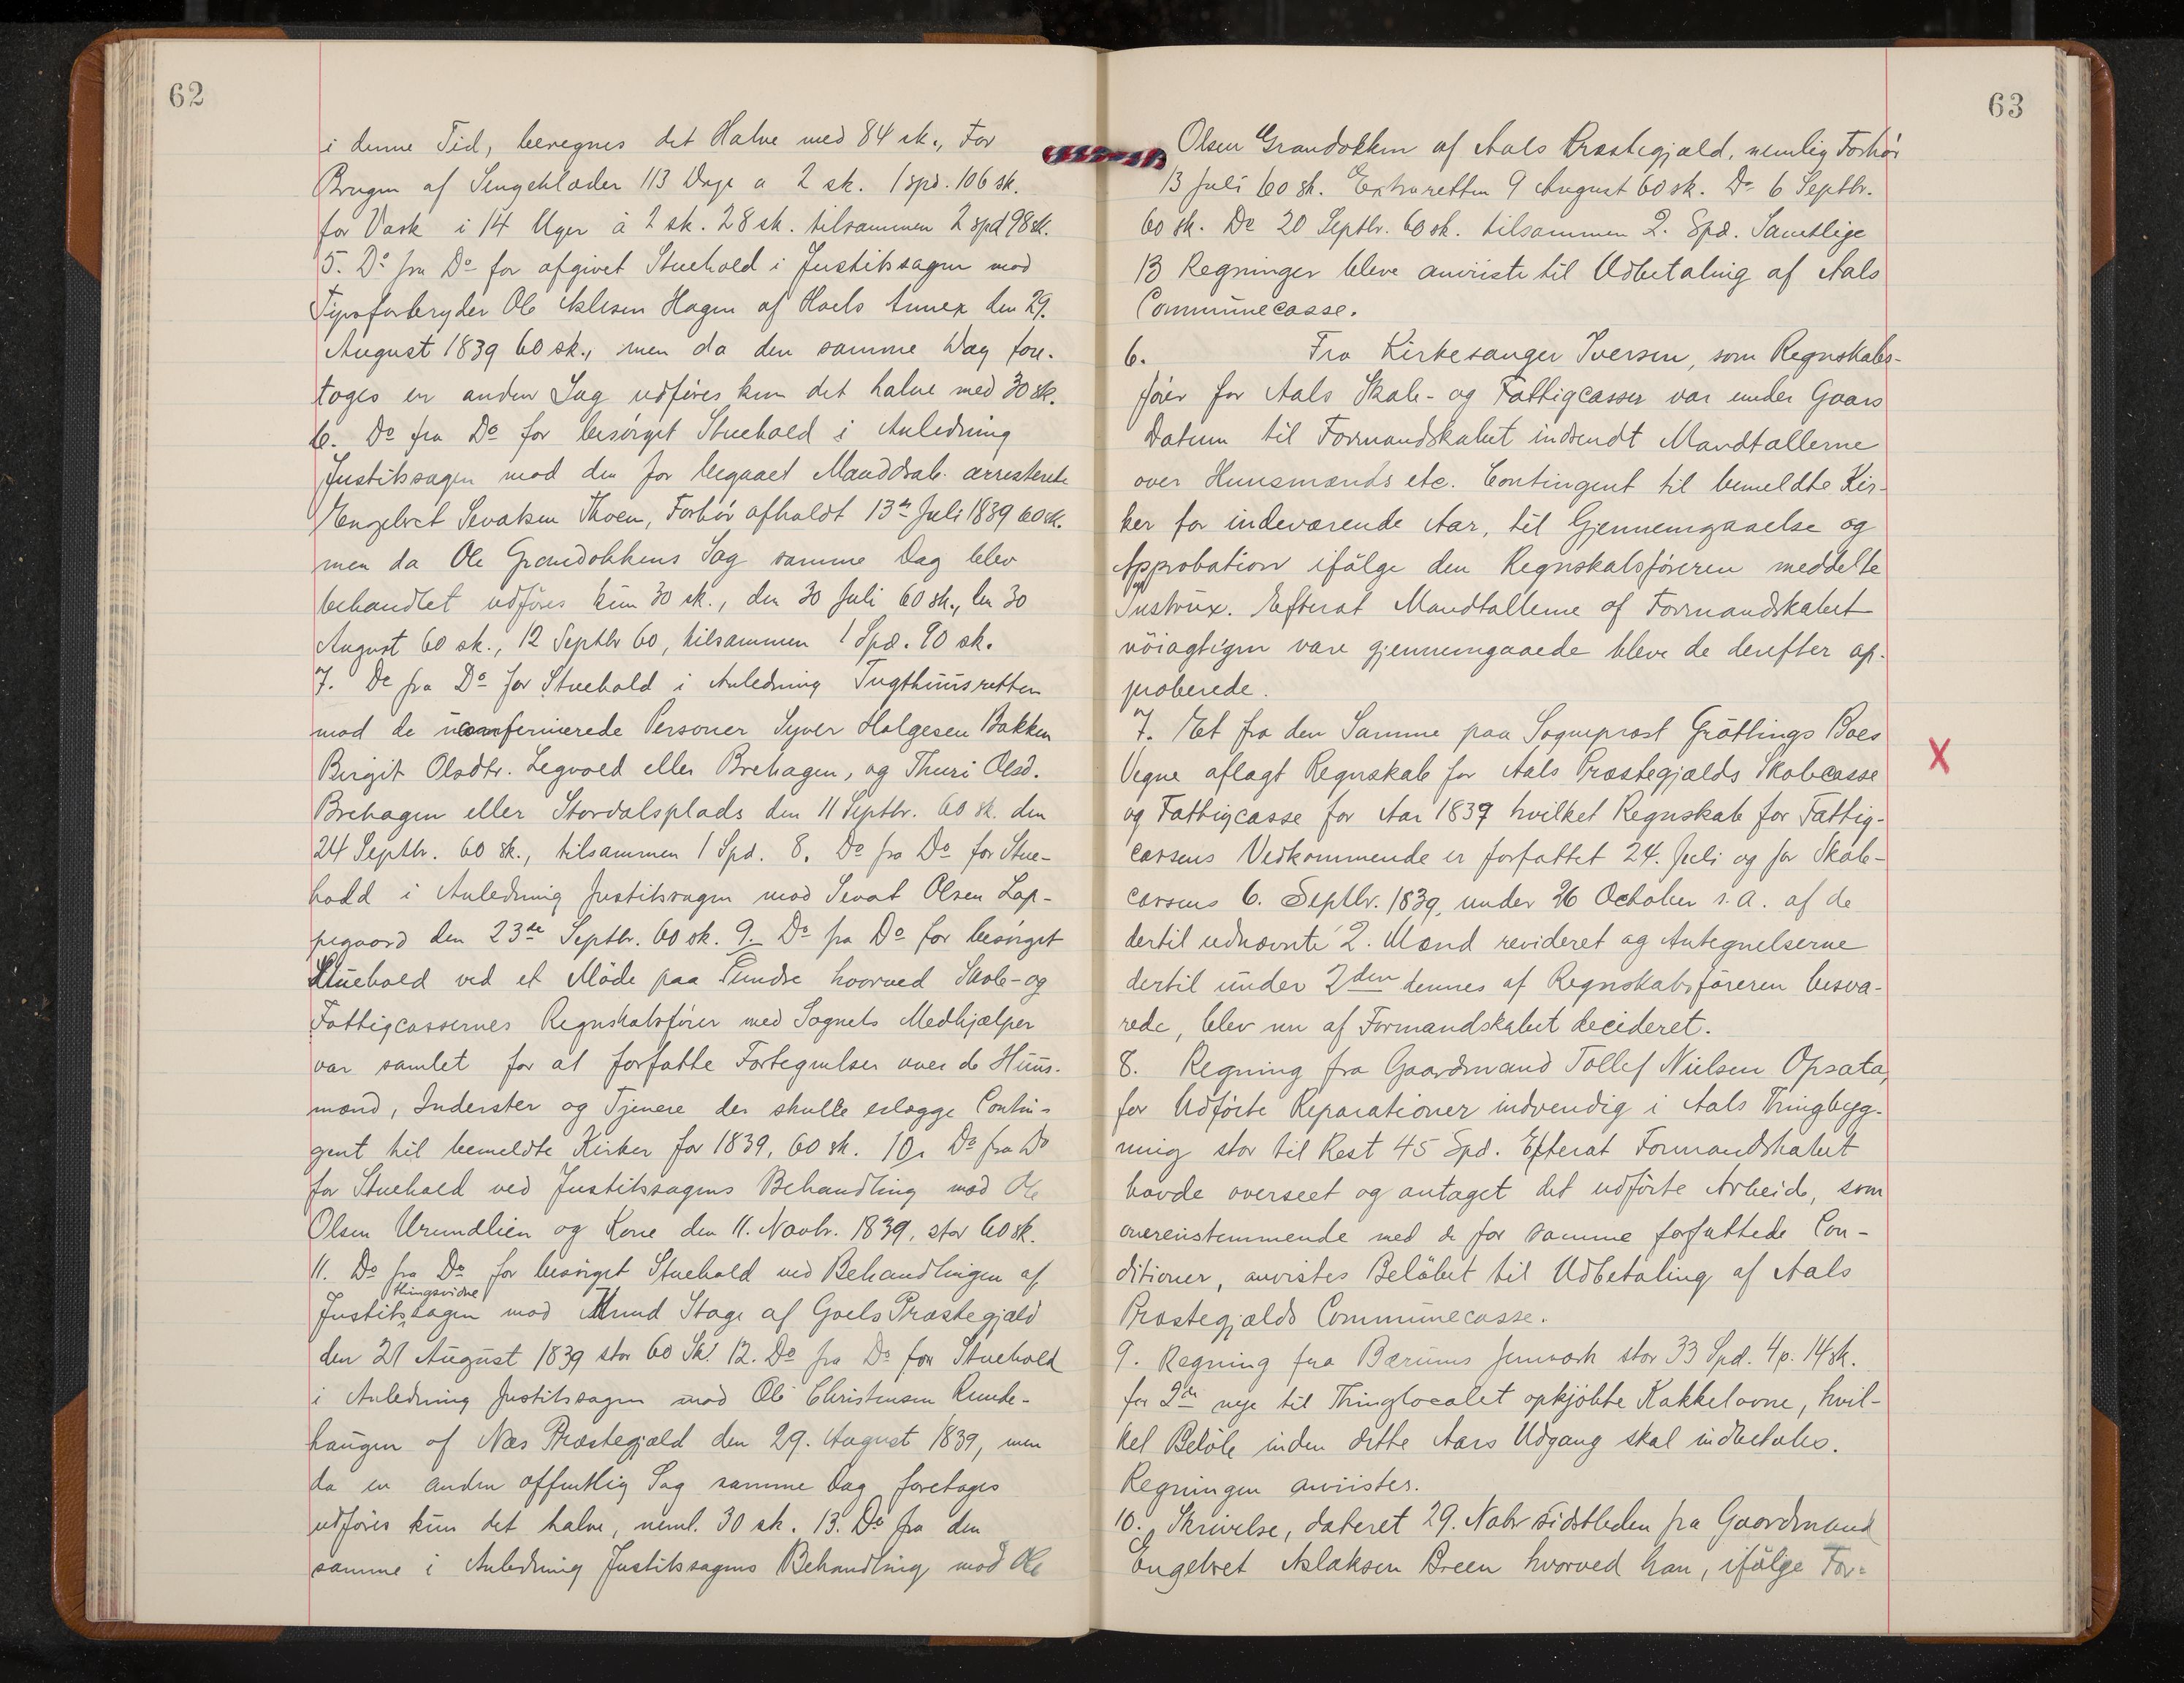 62
i denne Tid, beregnes det Halve med 84 sk., For
Brugen af Sengeklæder 113 Dage a 2 sk. 1 spd. 106 sk.
for Vask i 14 Uger à 2 sk. 28 sk. tilsammen 2 spd 98 sk.
5. Do fra Do for afgivet Stuehold i Justitssagen mod
Tyvsforbryder Ole Hagen af Hoels Annex den 29.
August 1839 60 sk., men da den samme Dag fore-
toges en anden Sag udføres kun det halve med 30 sk.
6. Do fra Do for besørget Stuehold i Anledning
Justitssagen mod den for begaaet Manddrab arresterede
Engebret Sevatsen Thoen, Forhør afholdt 13de Juli 1839 60 sk.
men da Ole Grandokkens Sag samme Dag blev
behandlet udføres kun 30 sk., den 30 Juli 60 sk., den 30
August 60 sk., 12 Septbr 60, tilsammen 1 Spd. 90 sk.
7. Do fra Do for Stuehold i Anledning Tugthuusretten
mod de uconfermerede Personer Syver Holgesen Bakken
Birgit Olsdtr. Legvold eller Brehagen, og Thuri Olsd.
Brehagen eller Stordalsplads den 11 Septbr. 60 sk. den
24 Septbr. 60 sk., tilsammen 1 Spd. 8. Do fra Do for Stue-
hold i Anledning Justitssagen mod Sevat Olsen Lap-
pegaard den 23de Septbr. 60 sk. 9. Do fra Do for besørget
Stuehold ved et Møde paa Sundre hvorved Skole- og
Fattigcassernes Regnskabsfører med Sognets Medhjælper
var samlet for at forfatte Fortegnelser over de Huus-
mænd, Inderster og Tjenere der skulle erlægge Contin-
gent til bemeldte Kirker for 1839, 60 sk. 10. Do fra Do
for Stuehold ved Justitssagens Behandling mod Ole
Olsen Urundlien og Kone den 11. Novbr. 1839, stor 60 sk.
11. Do fra Do for besørget Stuehold ved Behandlingen af
thingsvidne
Justitssagen mod Knud Stage af Goels Præstegjæld
den 21 August 1839 stor 60 Sk. 12. Do fra Do for Stuehold
i Anledning Justitssagen mod Ole Christensen Runde-
haugen af Næs Præstegjæld den 29. August 1839, men
da en anden offentlig Sag samme Dag foretoges
udføres kun det halve, neml. 30 sk. 13. Do fra den
samme i Anledning Justitssagens Behandling mod Ole
63
Olsen Grandokken af Aals Præstegjæld, nemlig Forhør
13 Juli 60 sk. Extraretten 9 August 60 sk. Do 6 Septbr.
60 sk. Do 20 Septbr. 60 sk. tilsammen 2. Spd. Samtlige
13 Regninger bleve anviiste til Udbetaling af Aals
Communecasse.
6. Fra Kirkesanger Iversen, som Regnskabs-
fører for Aals Skole- og Fattigcasser var under Gaars
Datum til Formandskabet indsendt Mandtallerne
over Huusmænds etc. Contingent til bemeldte Kir-
ker for indeværende Aar, til Gjennemgaaelse og
Approbation ifølge den Regnskabsføreren meddelte
Instrux. Efterat Mandtallerne af Formandskabet
nöiagtigen vare gjennemgaaede bleve de derefter ap-
proberede.
7. Et fra den Samme paa Sogneprost Gröttings Boes
Vegne aflagt Regnskab for Aals Præstegjælds Skolecasse
og Fattigcasse for Aar 1839 hvilket Regnskab for Fattig-
cassens Vedkommende er forfattet 24. Juli og for Skole-
cassens 6. Septbr. 1839, under 26 October s. a. af de
dertil udnævnte 2. Mænd revideret og Antegnelserne
dertil under 2den dennes af Regnskabsføreren besva-
rede, blev nu af Formandskabet decideret.
X
8. Regning fra Gaardmand Tollef Nielsen Opsata,
for Udførte Reparationer indvendig i Aals Thingbyg-
ning stor til Rest 45 Spd. Efterat Formandskabet
havde overseet og antaget det udførte Arbeide, som
overenstemmende med de for samme forfattede Con-
ditioner, anvistes Beløbet til Udbetaling af Aals
Præstegjælds Communecasse.
9. Regning fra Bærums Jernværk stor 33 Spd. 4 p. 14 sk.
for 2de nye til Thinglocalet opkjöbte Kakkelovne, hvil-
ket Beløb inden dette Aars Udgang skal indbetales.
Regningen anviistes.
10. Skrivelse, dateret 29. Nobr sidstleden fra Gaardmand
Engebret Aslaksen Breen hvorved han, ifølge For-